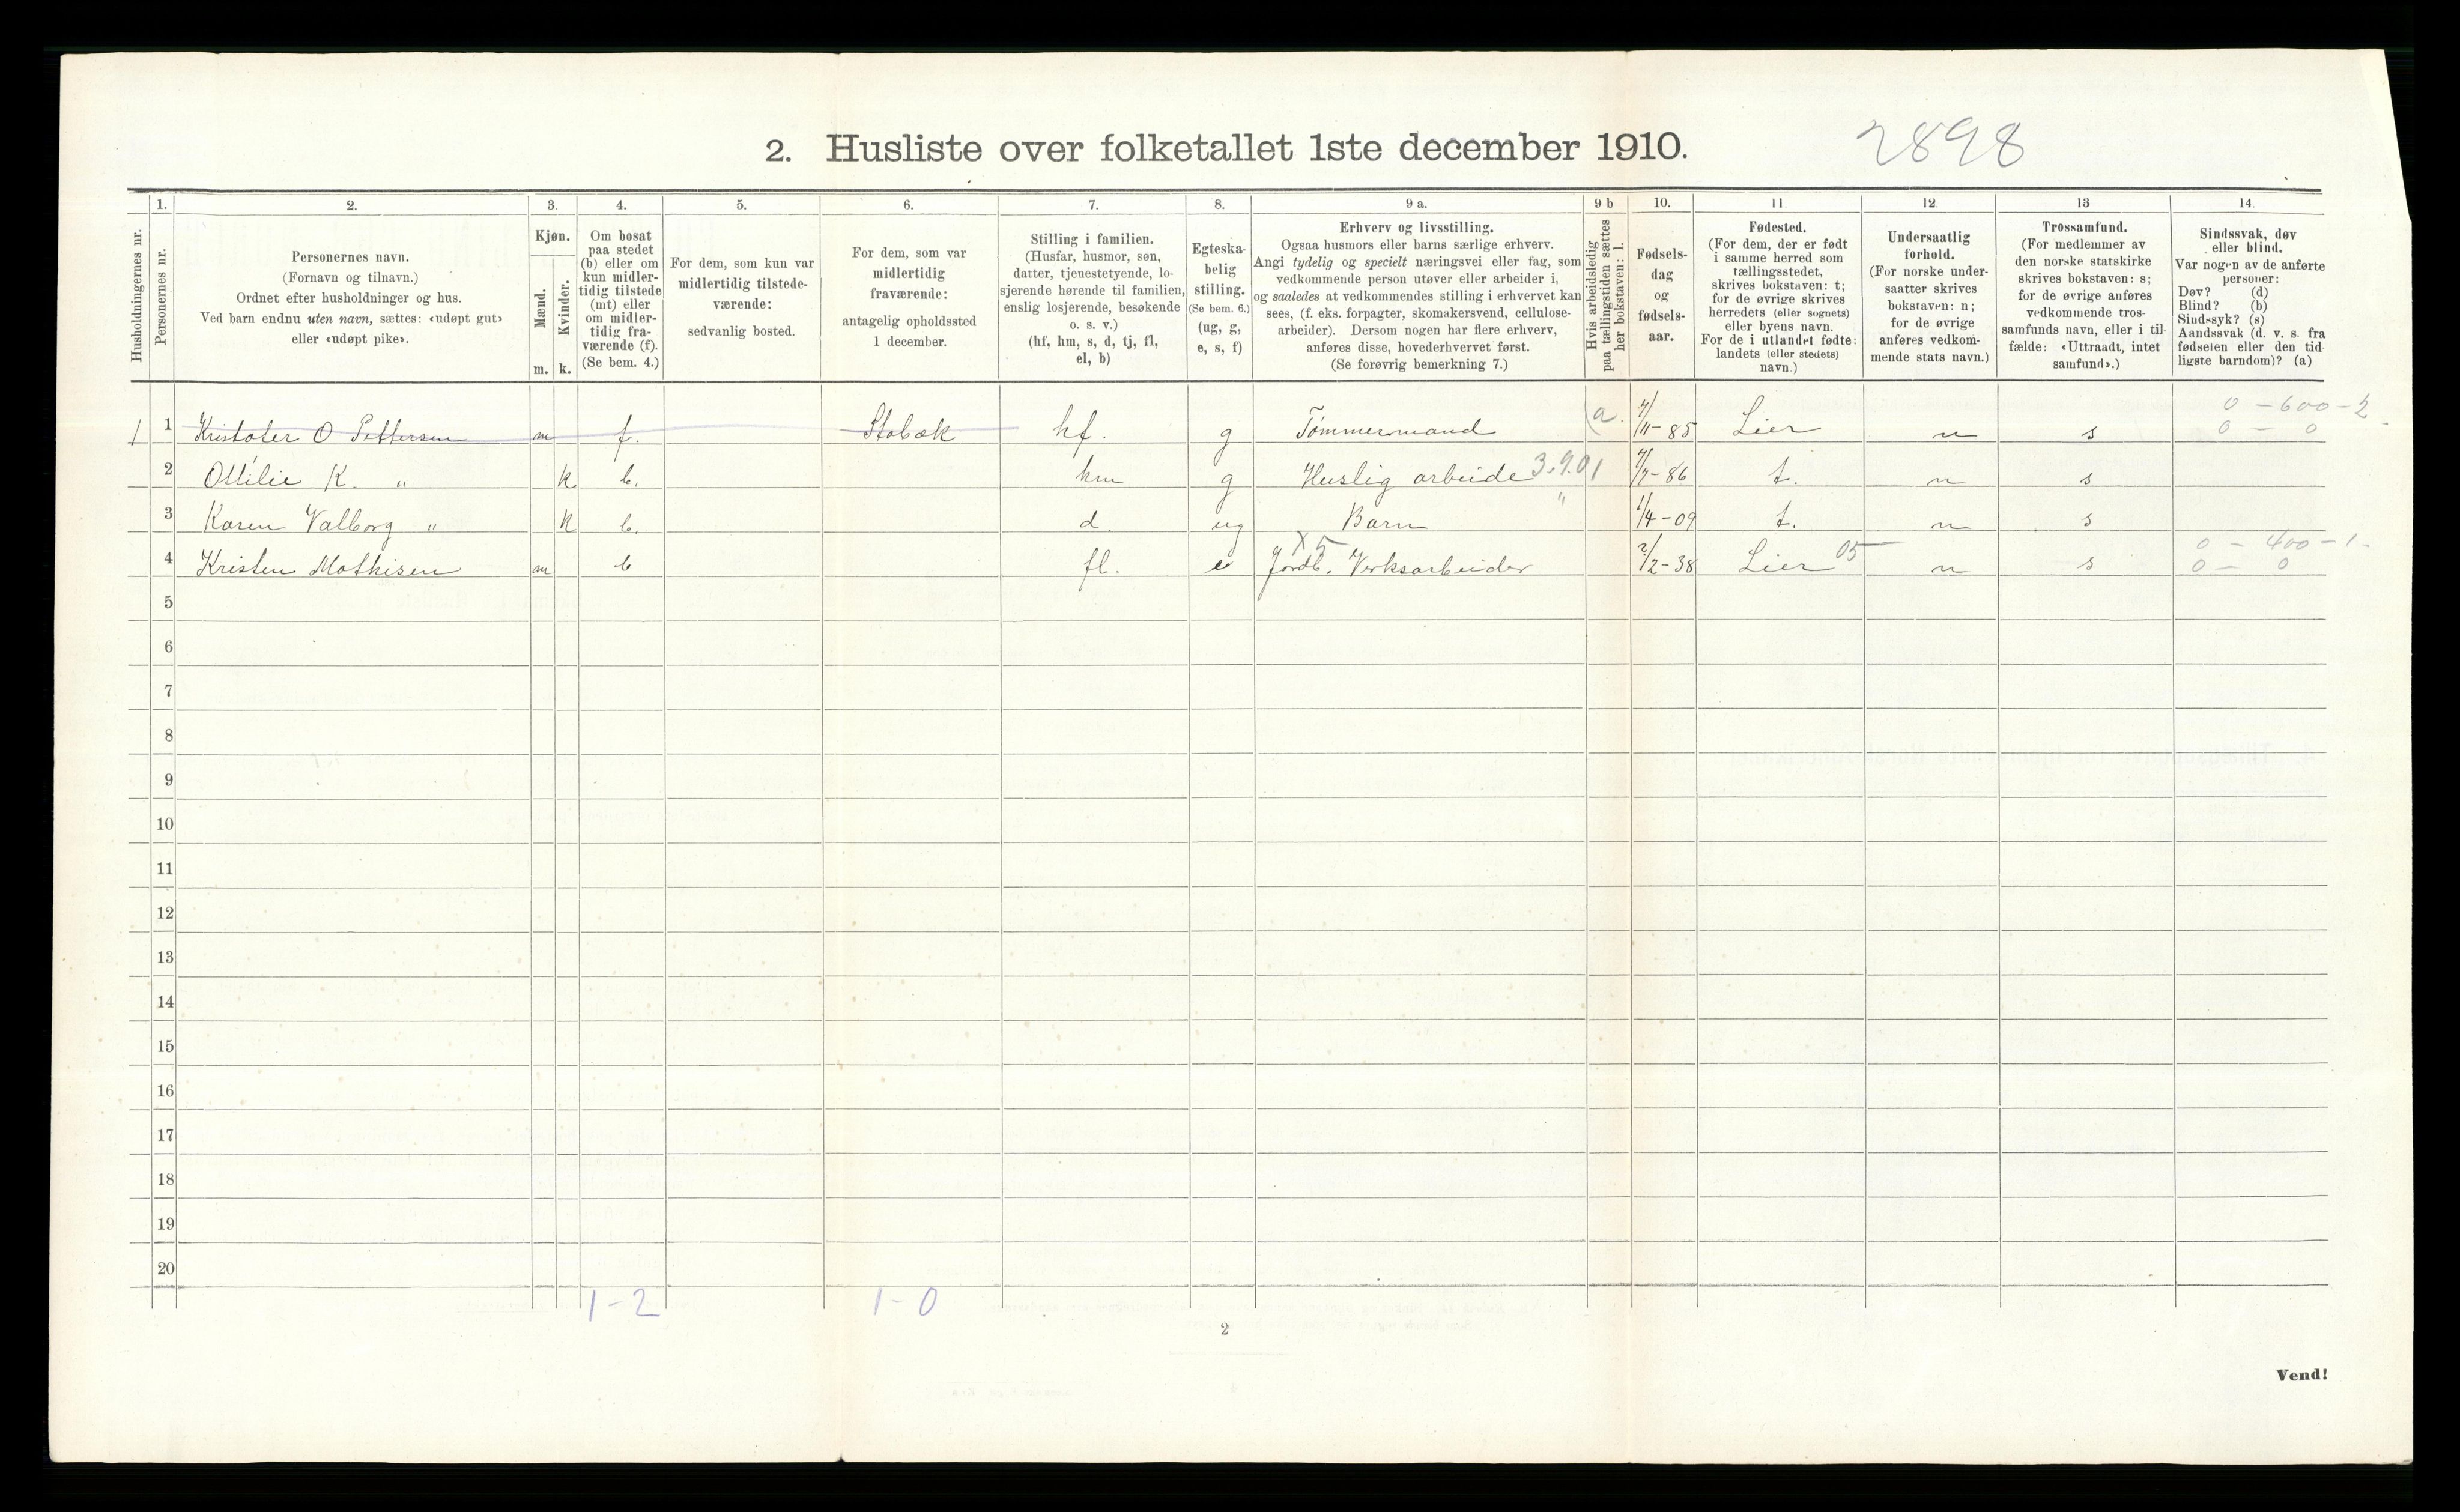 2. Husliste over folketallet 1ste december 1910. 2898
Husholdningernes nr.
1. Personernes nr.
2. Personernes navn.
(Fornavn og tilnavn.)
Ordnet efter husholdninger og hus.
Ved barn endnu uten navn, sættes: «udøpt gut»
eller «udøpt pike».
3. Kjøn.
Mænd. m.
Kvinder. k.
4. Om bosat
paa stedet
(b) eller om
kun midler-
tidig tilstede
(mt) eller
om midler-
tidig fra-
værende (f).
(Se bem. 4.)
5. For dem, som kun var
midlertidig tilstede-
værende:
sedvanlig bosted.
6. For dem, som var
midlertidig
fraværende:
antagelig opholdssted
1 december.
7. Stilling i familien.
(Husfar, husmor, søn,
datter, tjenestetyende, lo-
sjerende hørende til familien,
enslig losjerende, besøkende
o. s. v.)
(hf, hm, s, d, tj, fl,
el, b)
8. Egteska-
belig
stilling.
(Se bem. 6.)
(ug, g,
e, s, f)
9 a. Erhverv og livsstilling.
Ogsaa husmors eller barns særlige erhverv.
Angi tydelig og specielt næringsvei eller fag, som
vedkommende person utøver eller arbeider i,
og saaledes at vedkommendes stilling i erhvervet kan
sees, (f. eks. forpagter, skomakersvend, cellulose-
arbeider). Dersom nogen har flere erhverv,
anføres disse, hovederhvervet først.
(Se forøvrig bemerkning 7.)
9 b Hvis arbeidsledig
paa tællingstiden sættes
her bokstaven: l.
10. Fødsels-
dag
og
fødsels-
aar.
11. Fødested.
(For dem, der er født
i samme herred som
tællingsstedet,
skrives bokstaven: t;
for de øvrige skrives
herredets (eller sognets)
eller byens navn.
For de i utlandet fødte:
landets (eller stedets)
navn.)
12. Undersaatlig
forhold.
(For norske under-
saatter skrives
bokstaven: n;
for de øvrige
anføres vedkom-
mende stats navn.)
13 Trossamfund.
(For medlemmer av
den norske statskirke
skrives bokstaven: s;
for de øvrige anføres
vedkommende tros-
samfunds navn, eller i til-
fælde: «Uttraadt, intet
samfund».)
14. Sindssvak, døv
eller blind.
Var nogen av de anførte
personer:
Døv? (d)
Blind? (b)
Sindssyk? (s)
Aandssvak (d. v. s. fra
fødselen eller den tid-
ligste barndom)? (a)
0 - 600 - 2
1 1 Kristofer O Pettersen m f. Stabæk hf. g Tømmermand a. 4/11-85 Lier n s 0 - 0
2 Ottilie K. " k b. hm g Huslig arbeide 3.9.01 4/7-86 t. n s
3 Karen Valborg " k b. d. ug Barn " 1/4-09 t. n s
X5 05 0 - 400 - 1
4 Kristen Mathisen m b fl. e Jordb. Verksarbeider 2/2-38 Lier n s 0 - 0
5
6
7
8
9
10
11
12
13
14
15
16
17
18
19
20
1-2 1-0
2
Vend!